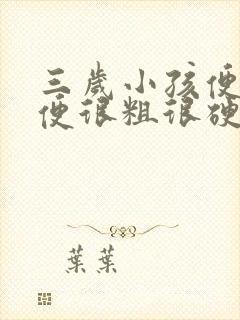 三歲小孩便
便很粗很硬
葉葉